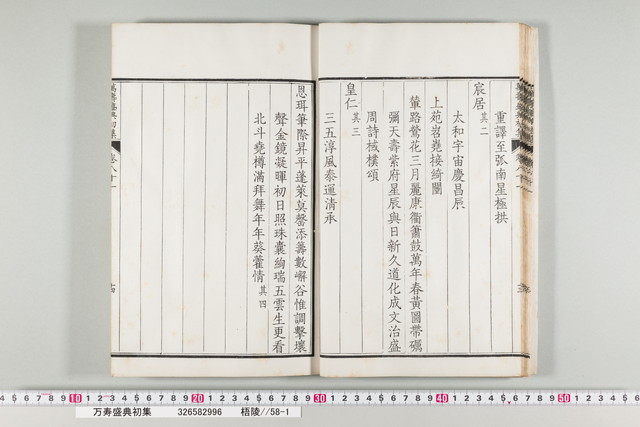 重譯至弧南星極拱
宸居其二
太和宇宙慶昌辰
上苑岧嶤接綺闉
輦路鶯花三月麗康衢簫鼓萬年春黃圖帶礪
彌天壽紫府星辰與日新久道化成文治盛
周詩棫樸頌
皇仁其三
三五淳風泰運清承
恩珥筆際昇平蓬萊莫罄添籌數嶰谷惟調擊壤
聲金鏡凝暉初日照珠囊絢瑞五雲生更看
北斗堯樽滿拜舞年年葵藿情其四
萬壽盛典初集
卷八十一
十四
万寿盛典初集 326582996 梧陵//58-1